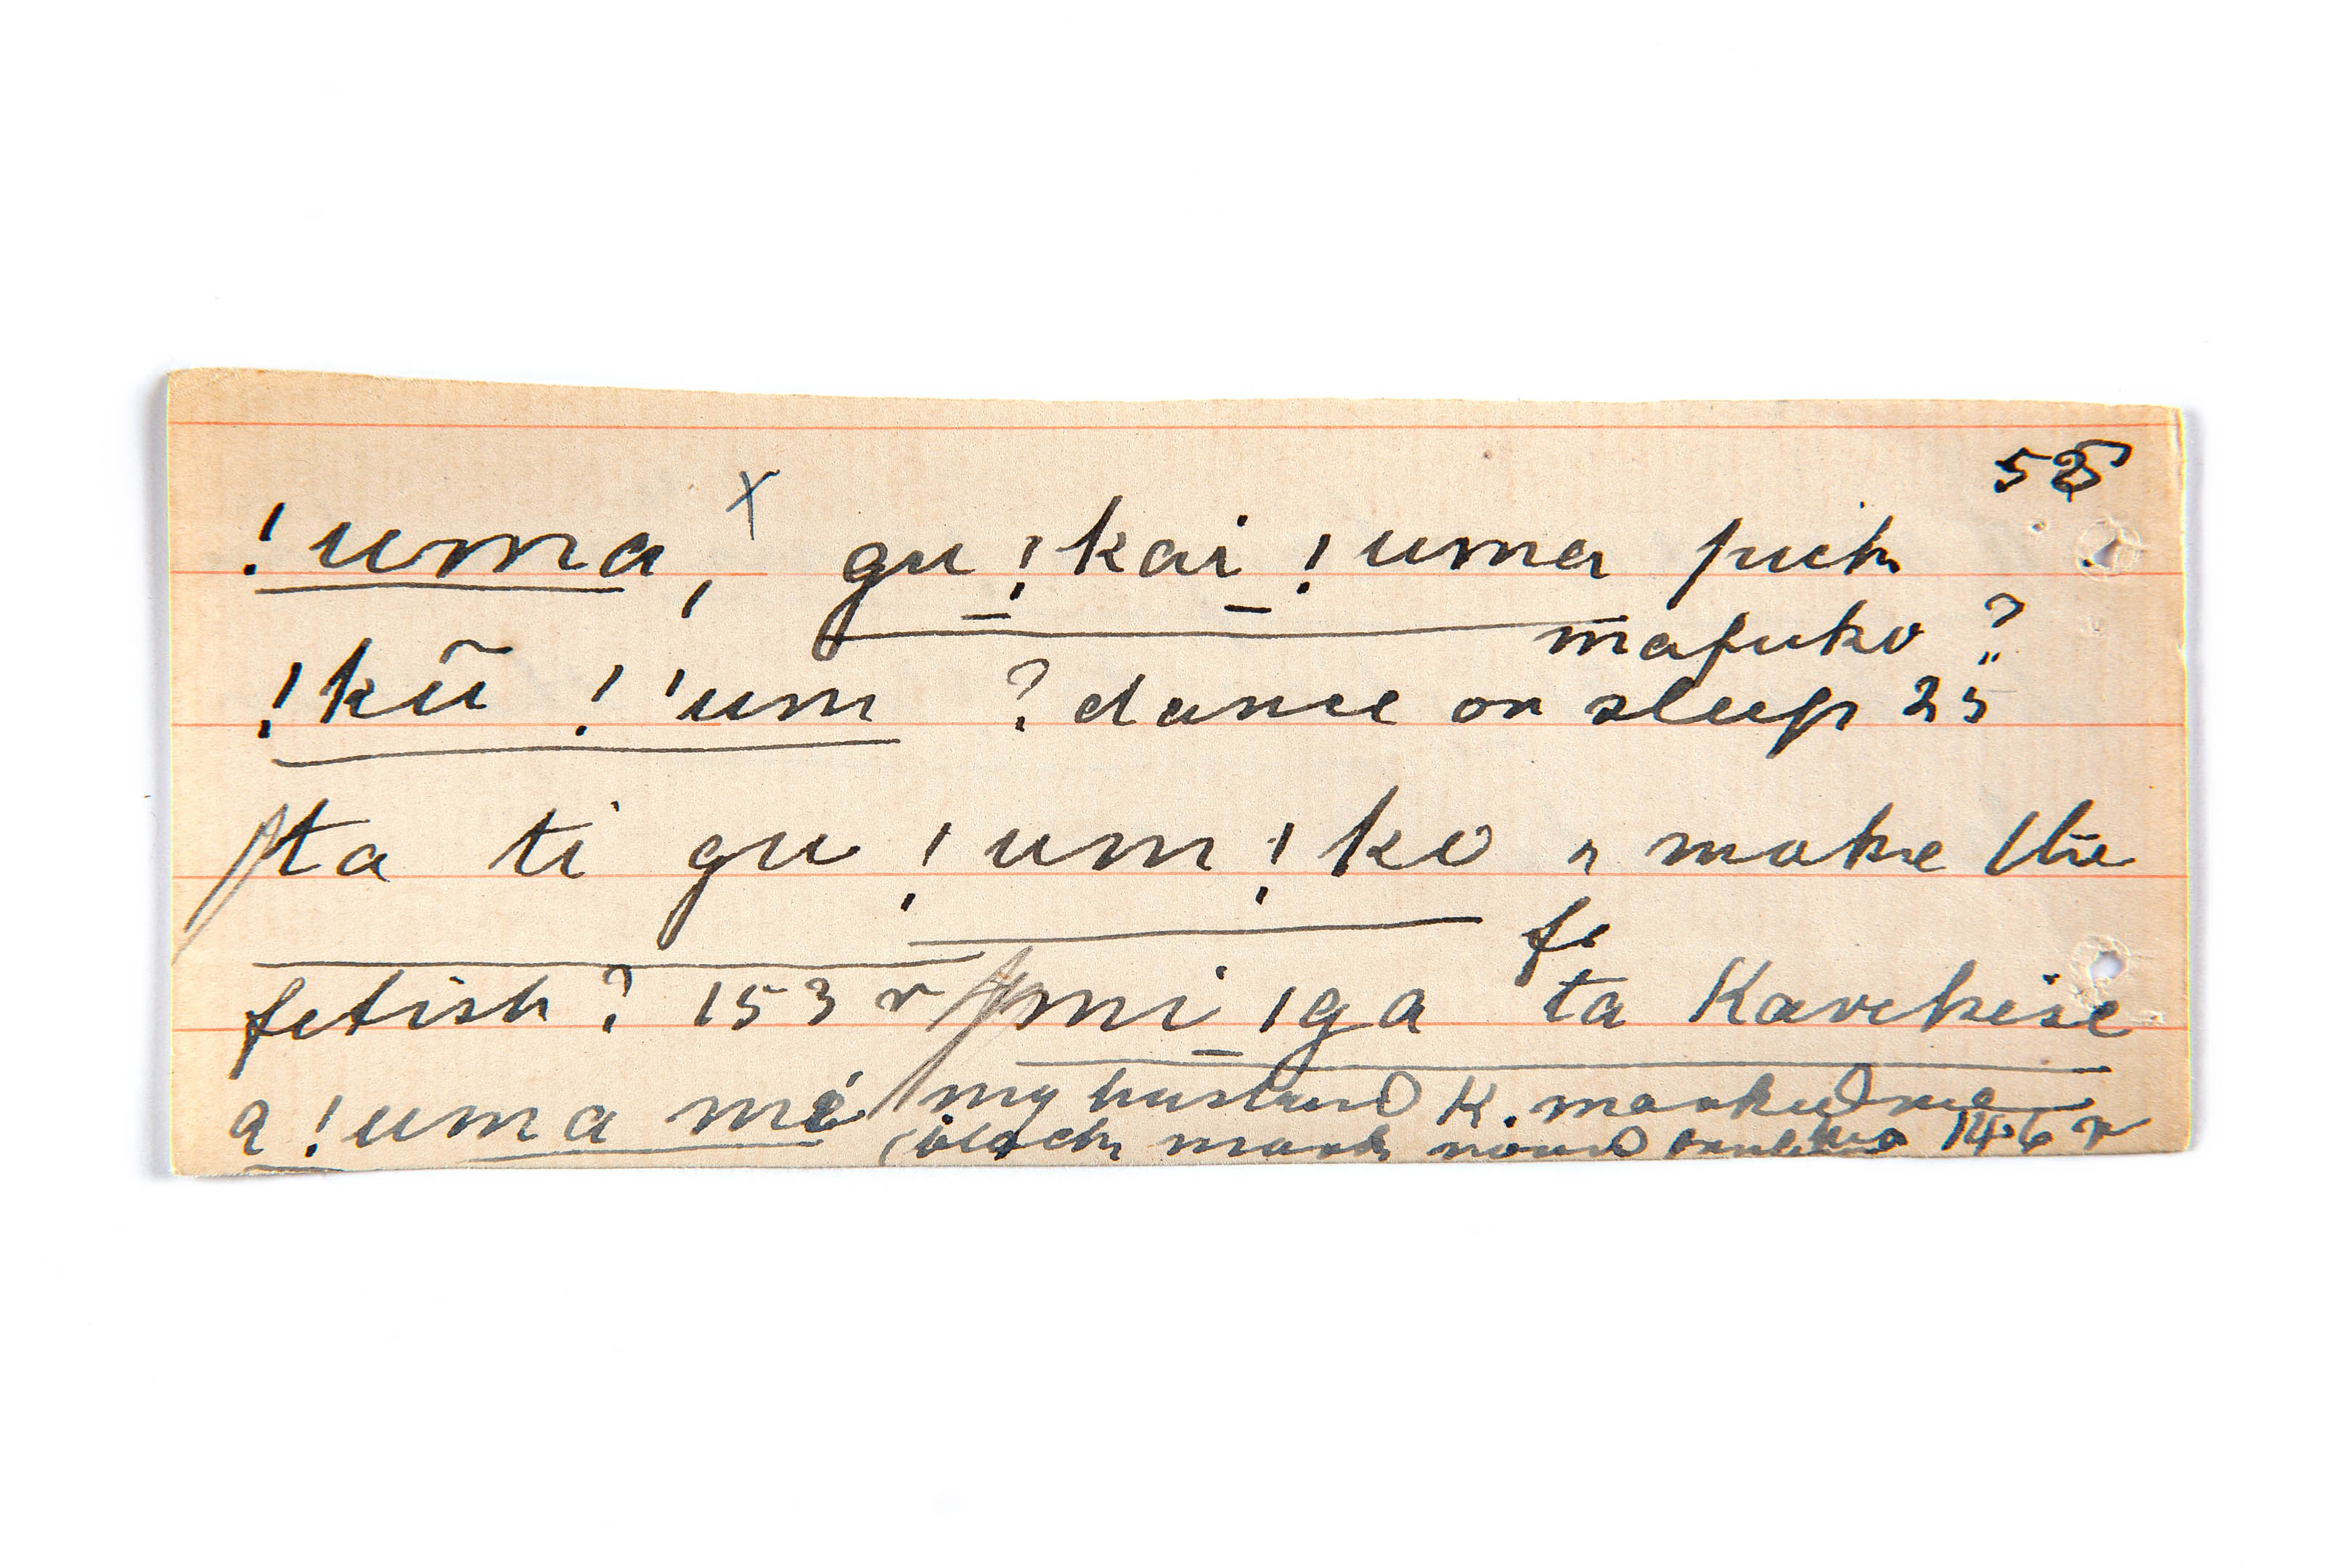 55
!uma, x gu !kai !uma pick
mafuko ?
!kũ ! 'um ? dance or sleep 25
ta ti gu !um !ko " make the
fe
fetish ? 153 r mi ıga ta Karekise
a !uma mé my husband K. marked me
(black mark round 146 r